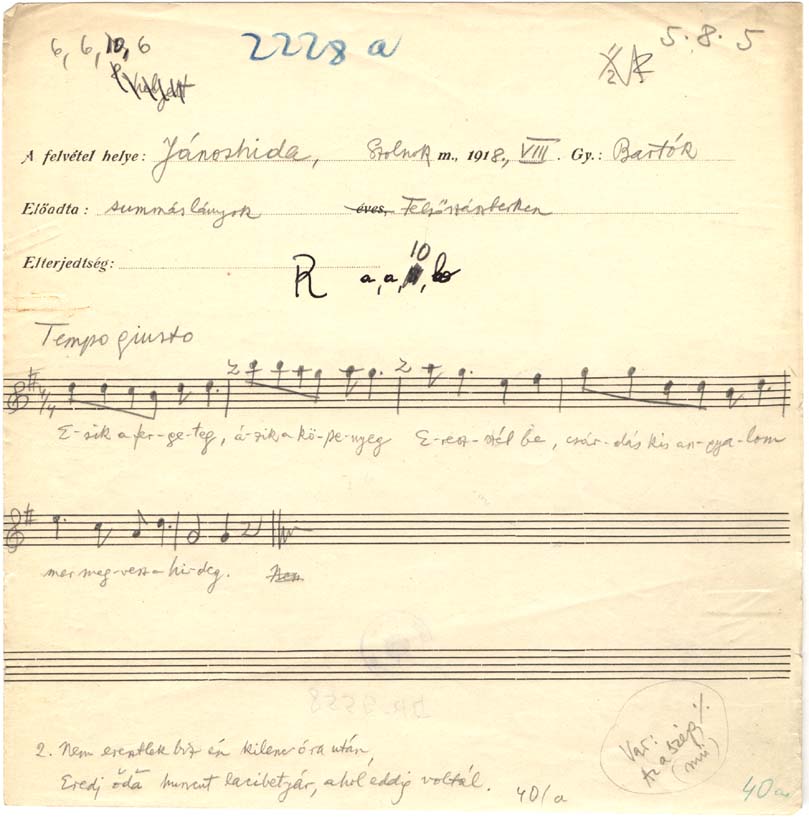 6, 6, 10, 6
2228 a
5. 8. 5
A felvétel helye: Jánoshida, Szolnok m., 1918., VIII. Gy.: Bartók
Előadta: summáslányok éves, Felsőszászberken
Elterjedtség:
R a, a, 10, b
Tempo giusto
E-sik a fer-ge-teg, á-zik a kö-pe-nyeg E-resz-szél be, csár-dás kis an-gya-lom
mer meg-vesz a hi-deg. Nem
2. Nem eresztlek biz én kilenc óra után,
Eredj ődă huncut lacibetyár, ahol eddig voltál.
40/a
Var:
Az a szép
(mű)
40a